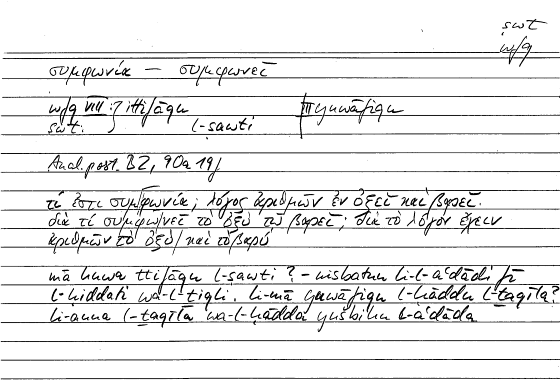 ṣwt
wfq
συμφωνία — συμφωνεῖ
wfq VIII : } ittifāqu III yuwāfiqu
ṣwt : l-ṣawti
Anal. post. B2, 90a 19f
τί ἐστι συμφωνία; λόγος ἀριθμῶν ἐν ὀξεῖ καὶ βαρεῖ.
διὰ τί συμφωνεῖ τὸ ὀξὺ τῷ βαρεῖ; διὰ τὸ λόγον ἔχειν
ἀριθμῶν τὸ ὀξὺ καὶ τὸ βαρύ
mā huwa ttifāqu l-ṣawti? – nisbatun li-l-aʿdādi fī
l-ḥiddati wa-l-ṯiqli. li-mā yuwāfiqu l-ḥāddu l-ṯaqīla?
li-anna l-ṯaqīla wa-l-ḥādda yušbihu l-aʿdāda